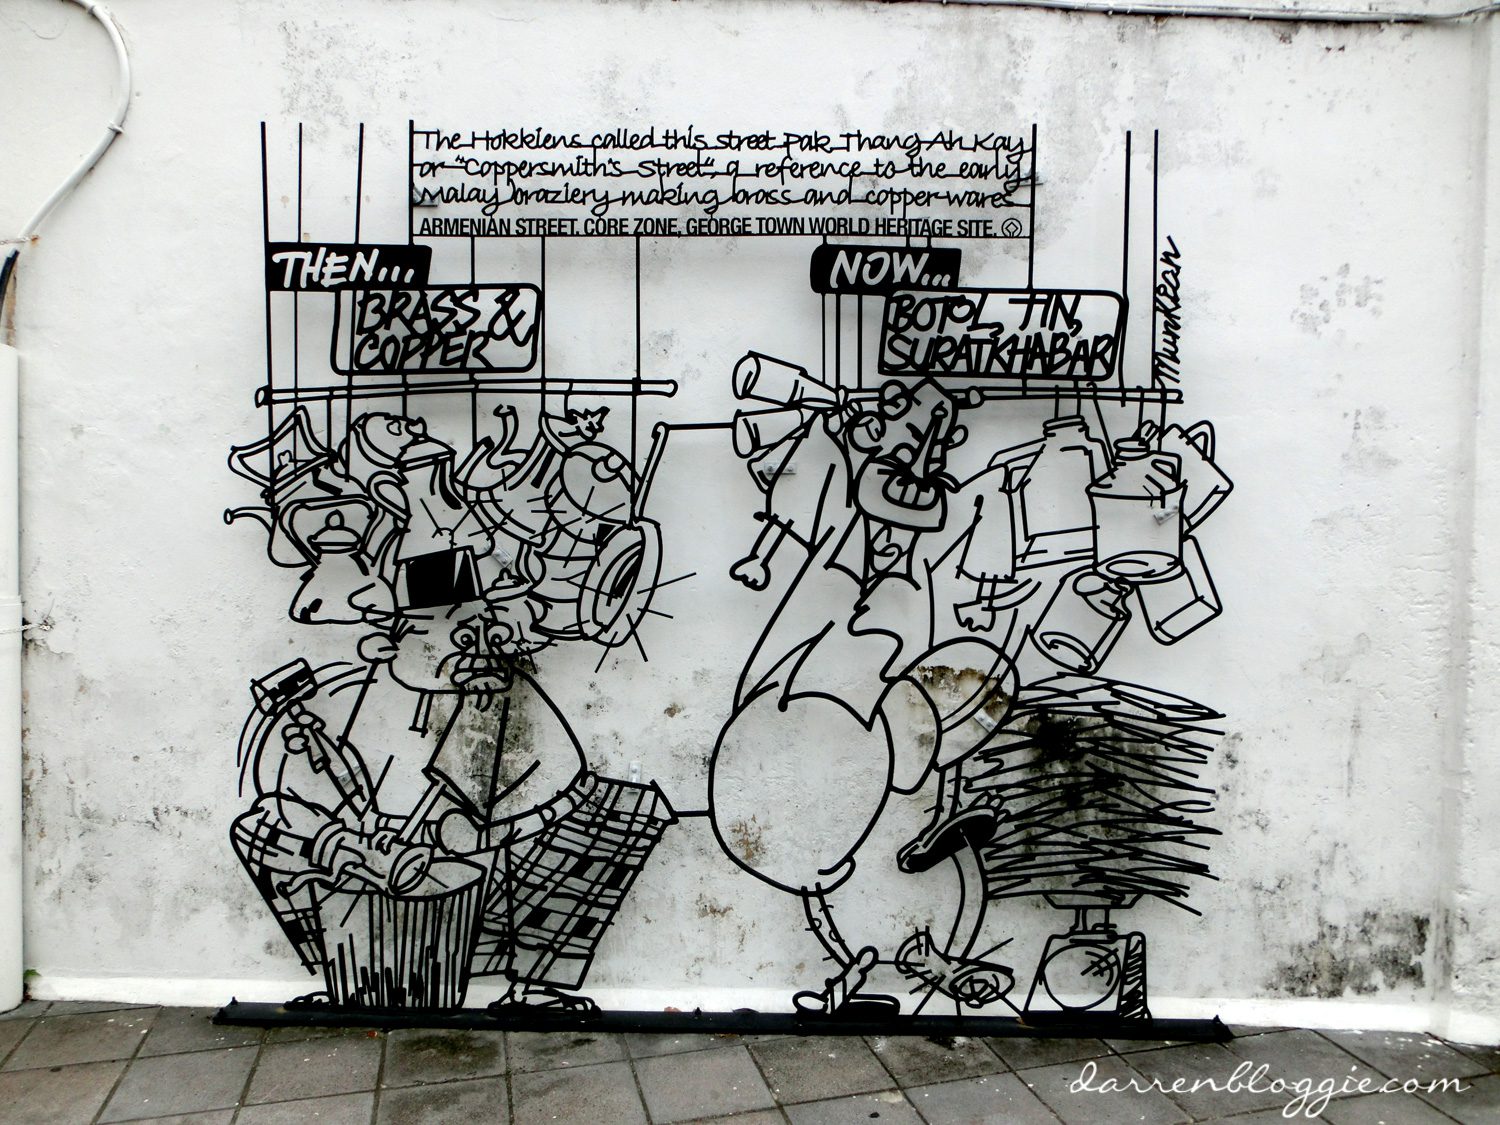 The Hokkiens called this street Pak Thang Ah Kay
or "Coppersmith's Street", a reference to the early
Malay braziery making brass and copper-wares
ARMENIAN STREET. CORE ZONE, GEORGE TOWN WORLD HERITAGE SITE.
THEN...
BRASS &
COPPER
NOW...
BOTOL, TIN,
SURATKHABAR
Munkean
darrenbloggie.com